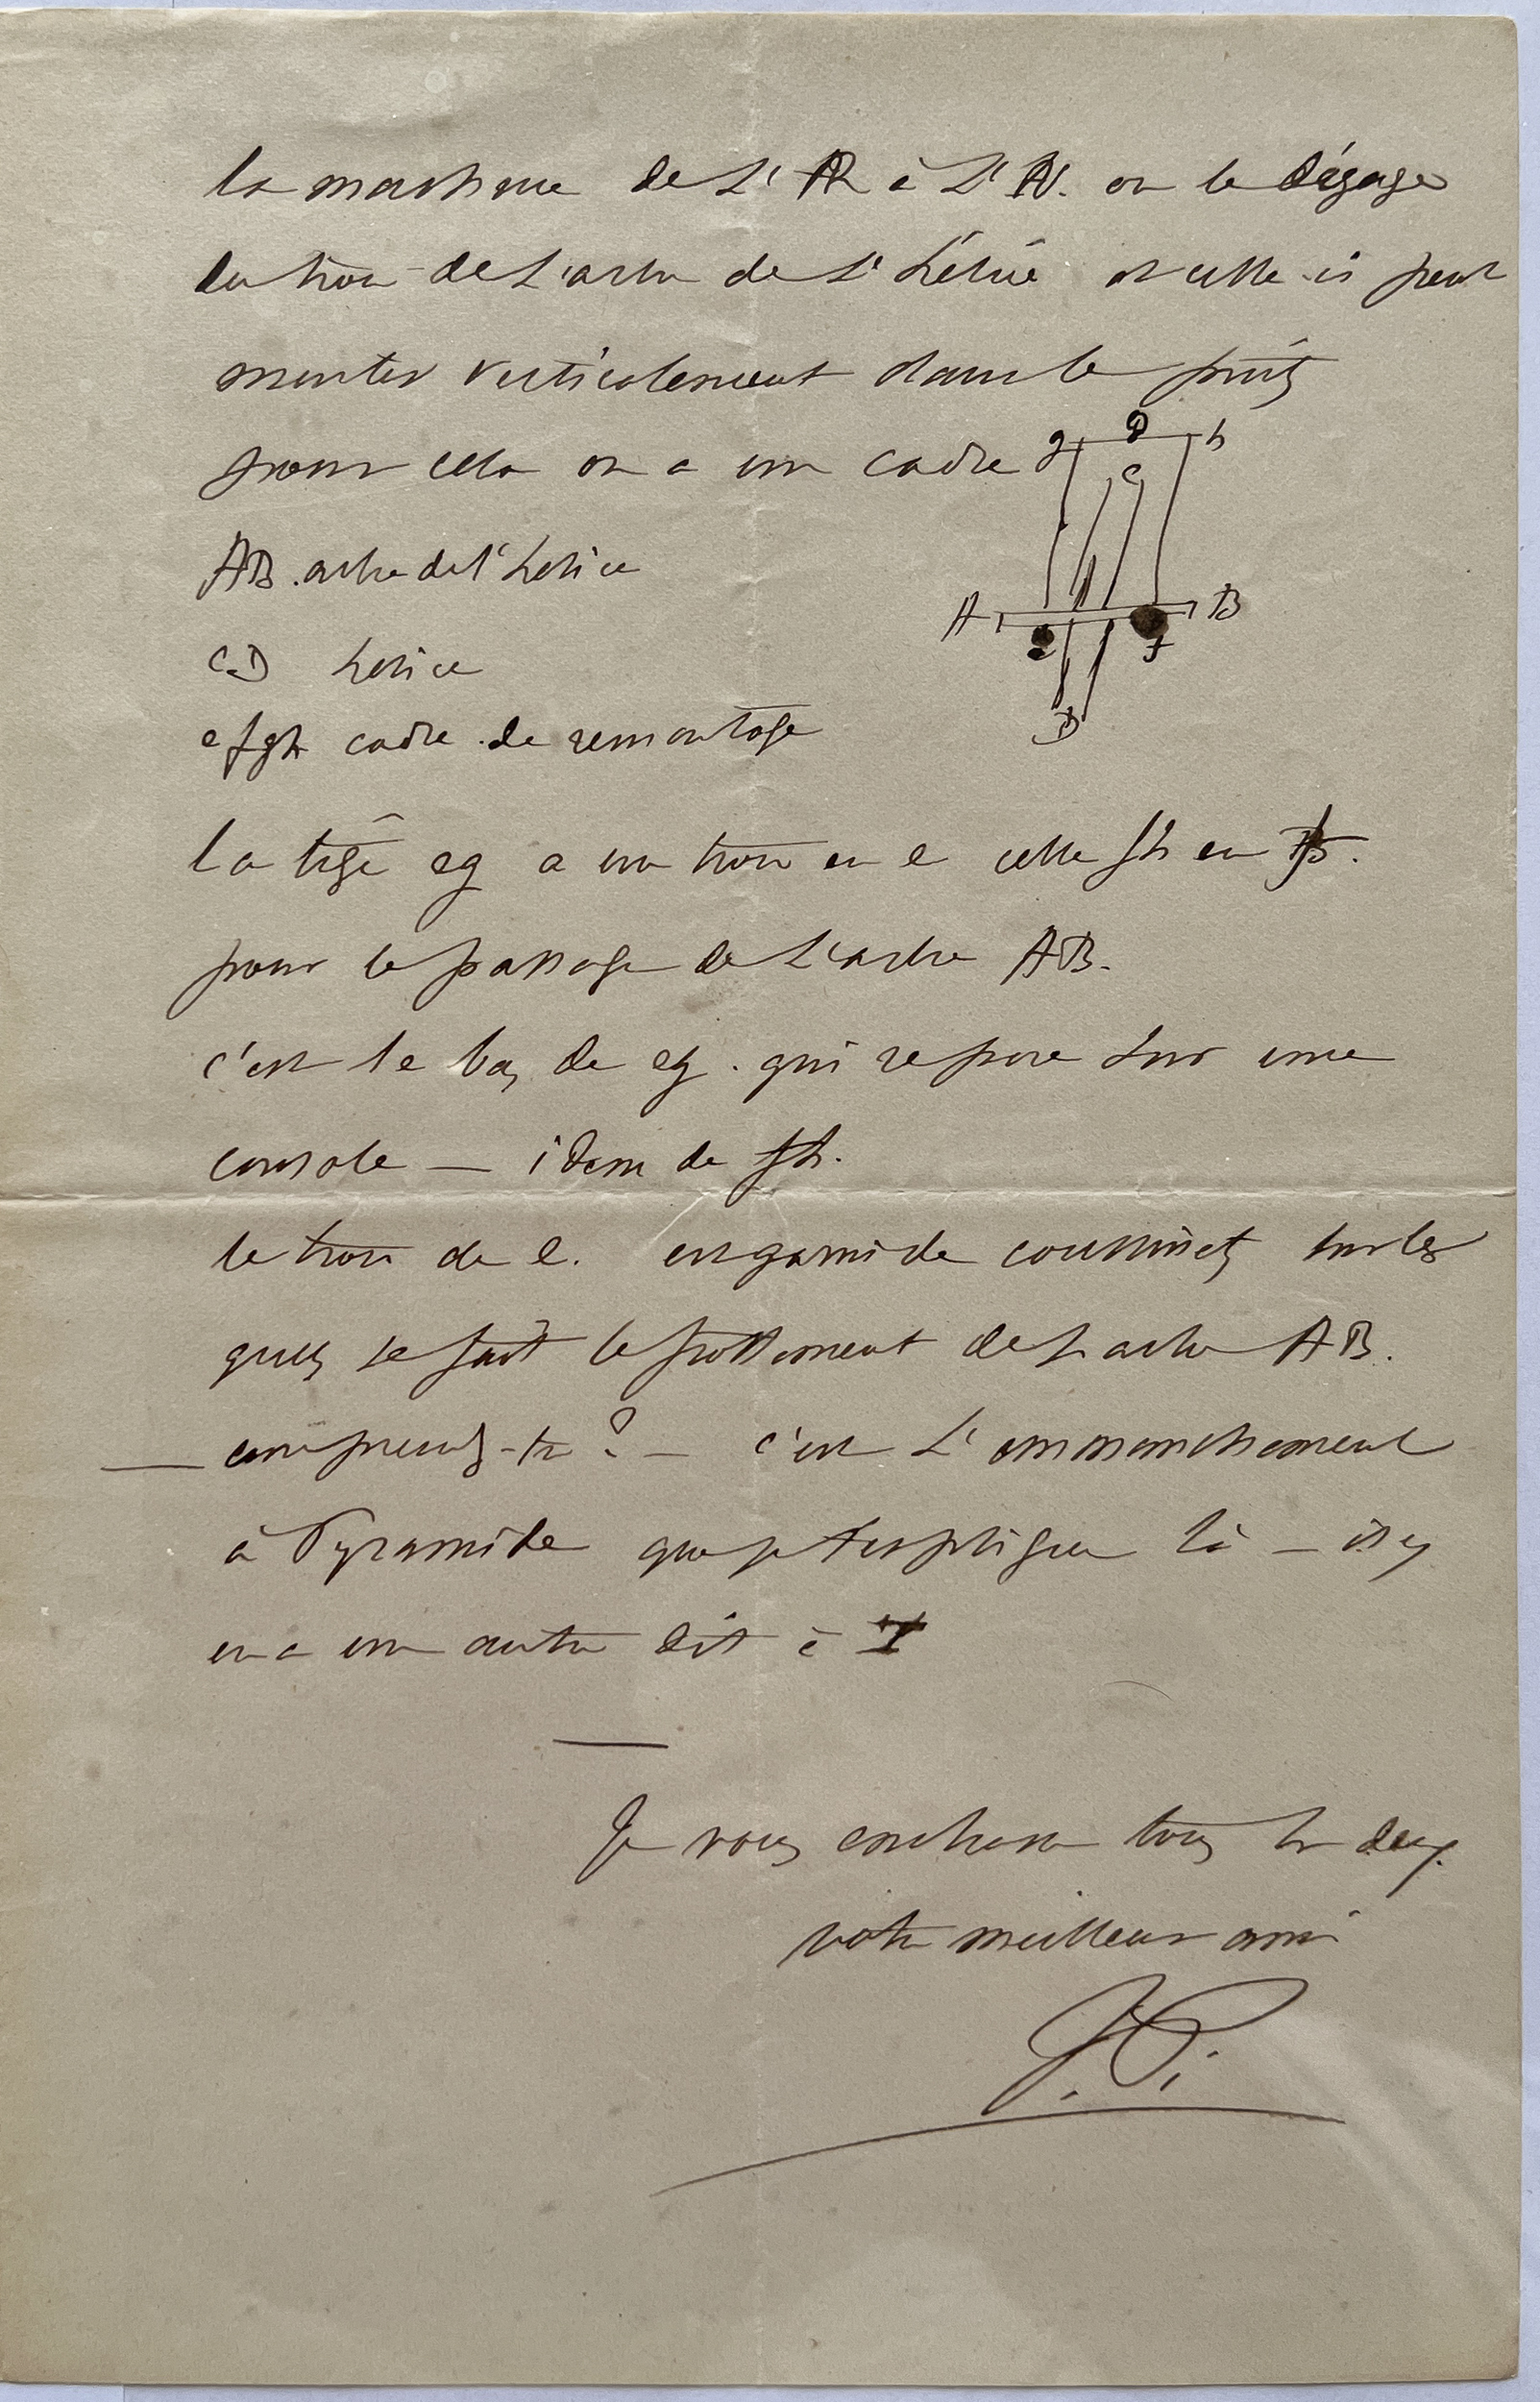 la machine de L'AR à L'AV. on le dégage
du trou de L'arbre de L'hélice et celle-ci peut
monter verticalement dans le puits
pour cela on a un cadre
g D h
C
A B
e f
D
AB. arbre de l'hélice
CD hélice
efgh cadre de remontage
la tige eg a un trou en e celle fh en f.
pour le passage de L'arbre AB.
c'est le bas de eg. qui repose sur une
console — idem de fh.
le trou de e. est garni de coussinets sur les
quels se fait le frottement de L'arbre AB.
— comprends-tu ? — c'est L'emmanchement
à Pyramide que je t'explique là — il y
en a un autre dit à T
Je vous embrasse tous les deux.
votre meilleur ami